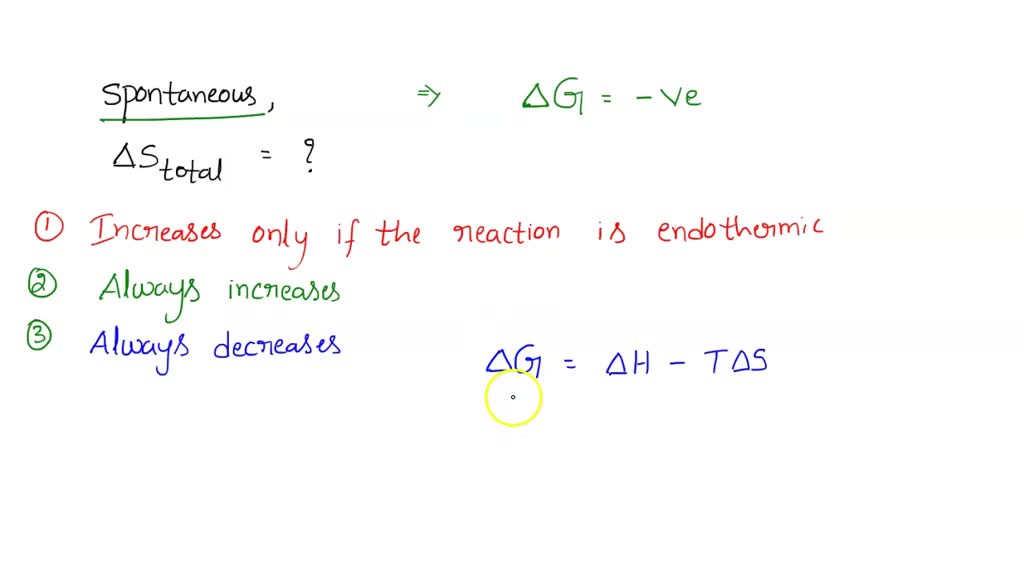 Spontaneous, ⇒ ΔG = -ve
ΔS total = ?
① Increases only if the reaction is endothermic
② Always increases
③ Always decreases
ΔG = ΔH - TΔS